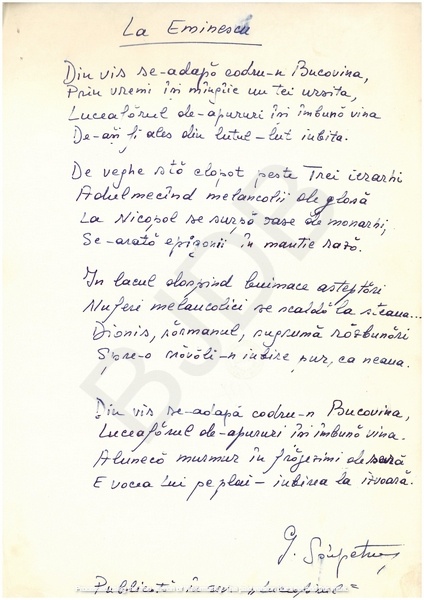 La Eminescu
Din vis se-adapă codru-n Bucovina,
Prin vremi își mîngîie un tei ursita,
Luceafărul de-apururi își îmbună vina
De-a-și fi ales din lutul-lut iubita.
De veghe stă clopot peste Trei ierarhi
Adulmecînd melancolii de glosă
La Nicopol se surpă rase de monarhi,
Se-arată epigonii în mantie
În lacul dospind buimace așteptări
Nuferi melancolici se scaldă la steaua...
Dionis, sărmanul, sugrumă răzbunări
Spre-o năvăli-n iubire pur, ca neaua.
Din vis se-adapă codru-n Bucovina,
Luceafărul de-apururi își îmbună vina.
Alunecă murmur în frăgezimi de seară
E vocea Lui pe plai - iubirea la izvoară.
Publicată în rev. "Luceafărul"
BJDB